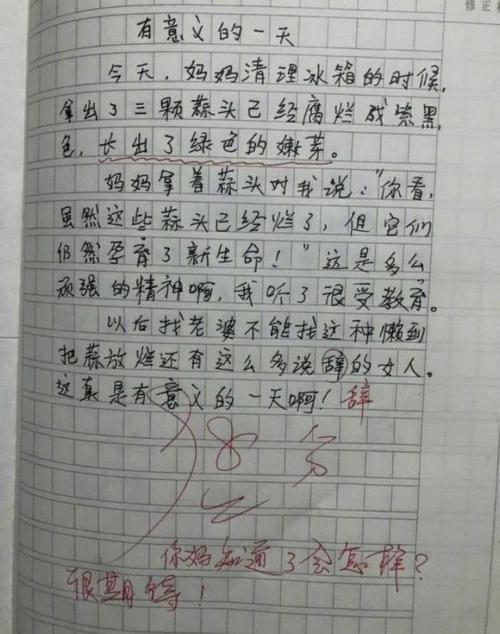 修正
有意义的一天
今天，妈妈清理冰箱的时候，
拿出了三颗蒜头已经腐烂成紫黑
色，长出了绿色的嫩芽。
妈妈拿着蒜头对我说："你看，
虽然这些蒜头已经烂了，但它们
仍然孕育了新生命！"这是多么
顽强的精神啊，我听了很受教育。
以后找老婆不能找这种懒到
把蒜放烂还有这么多说辞的女人。
这真是有意义的一天啊！辞
28分
你妈知道了会怎样？
很期待！